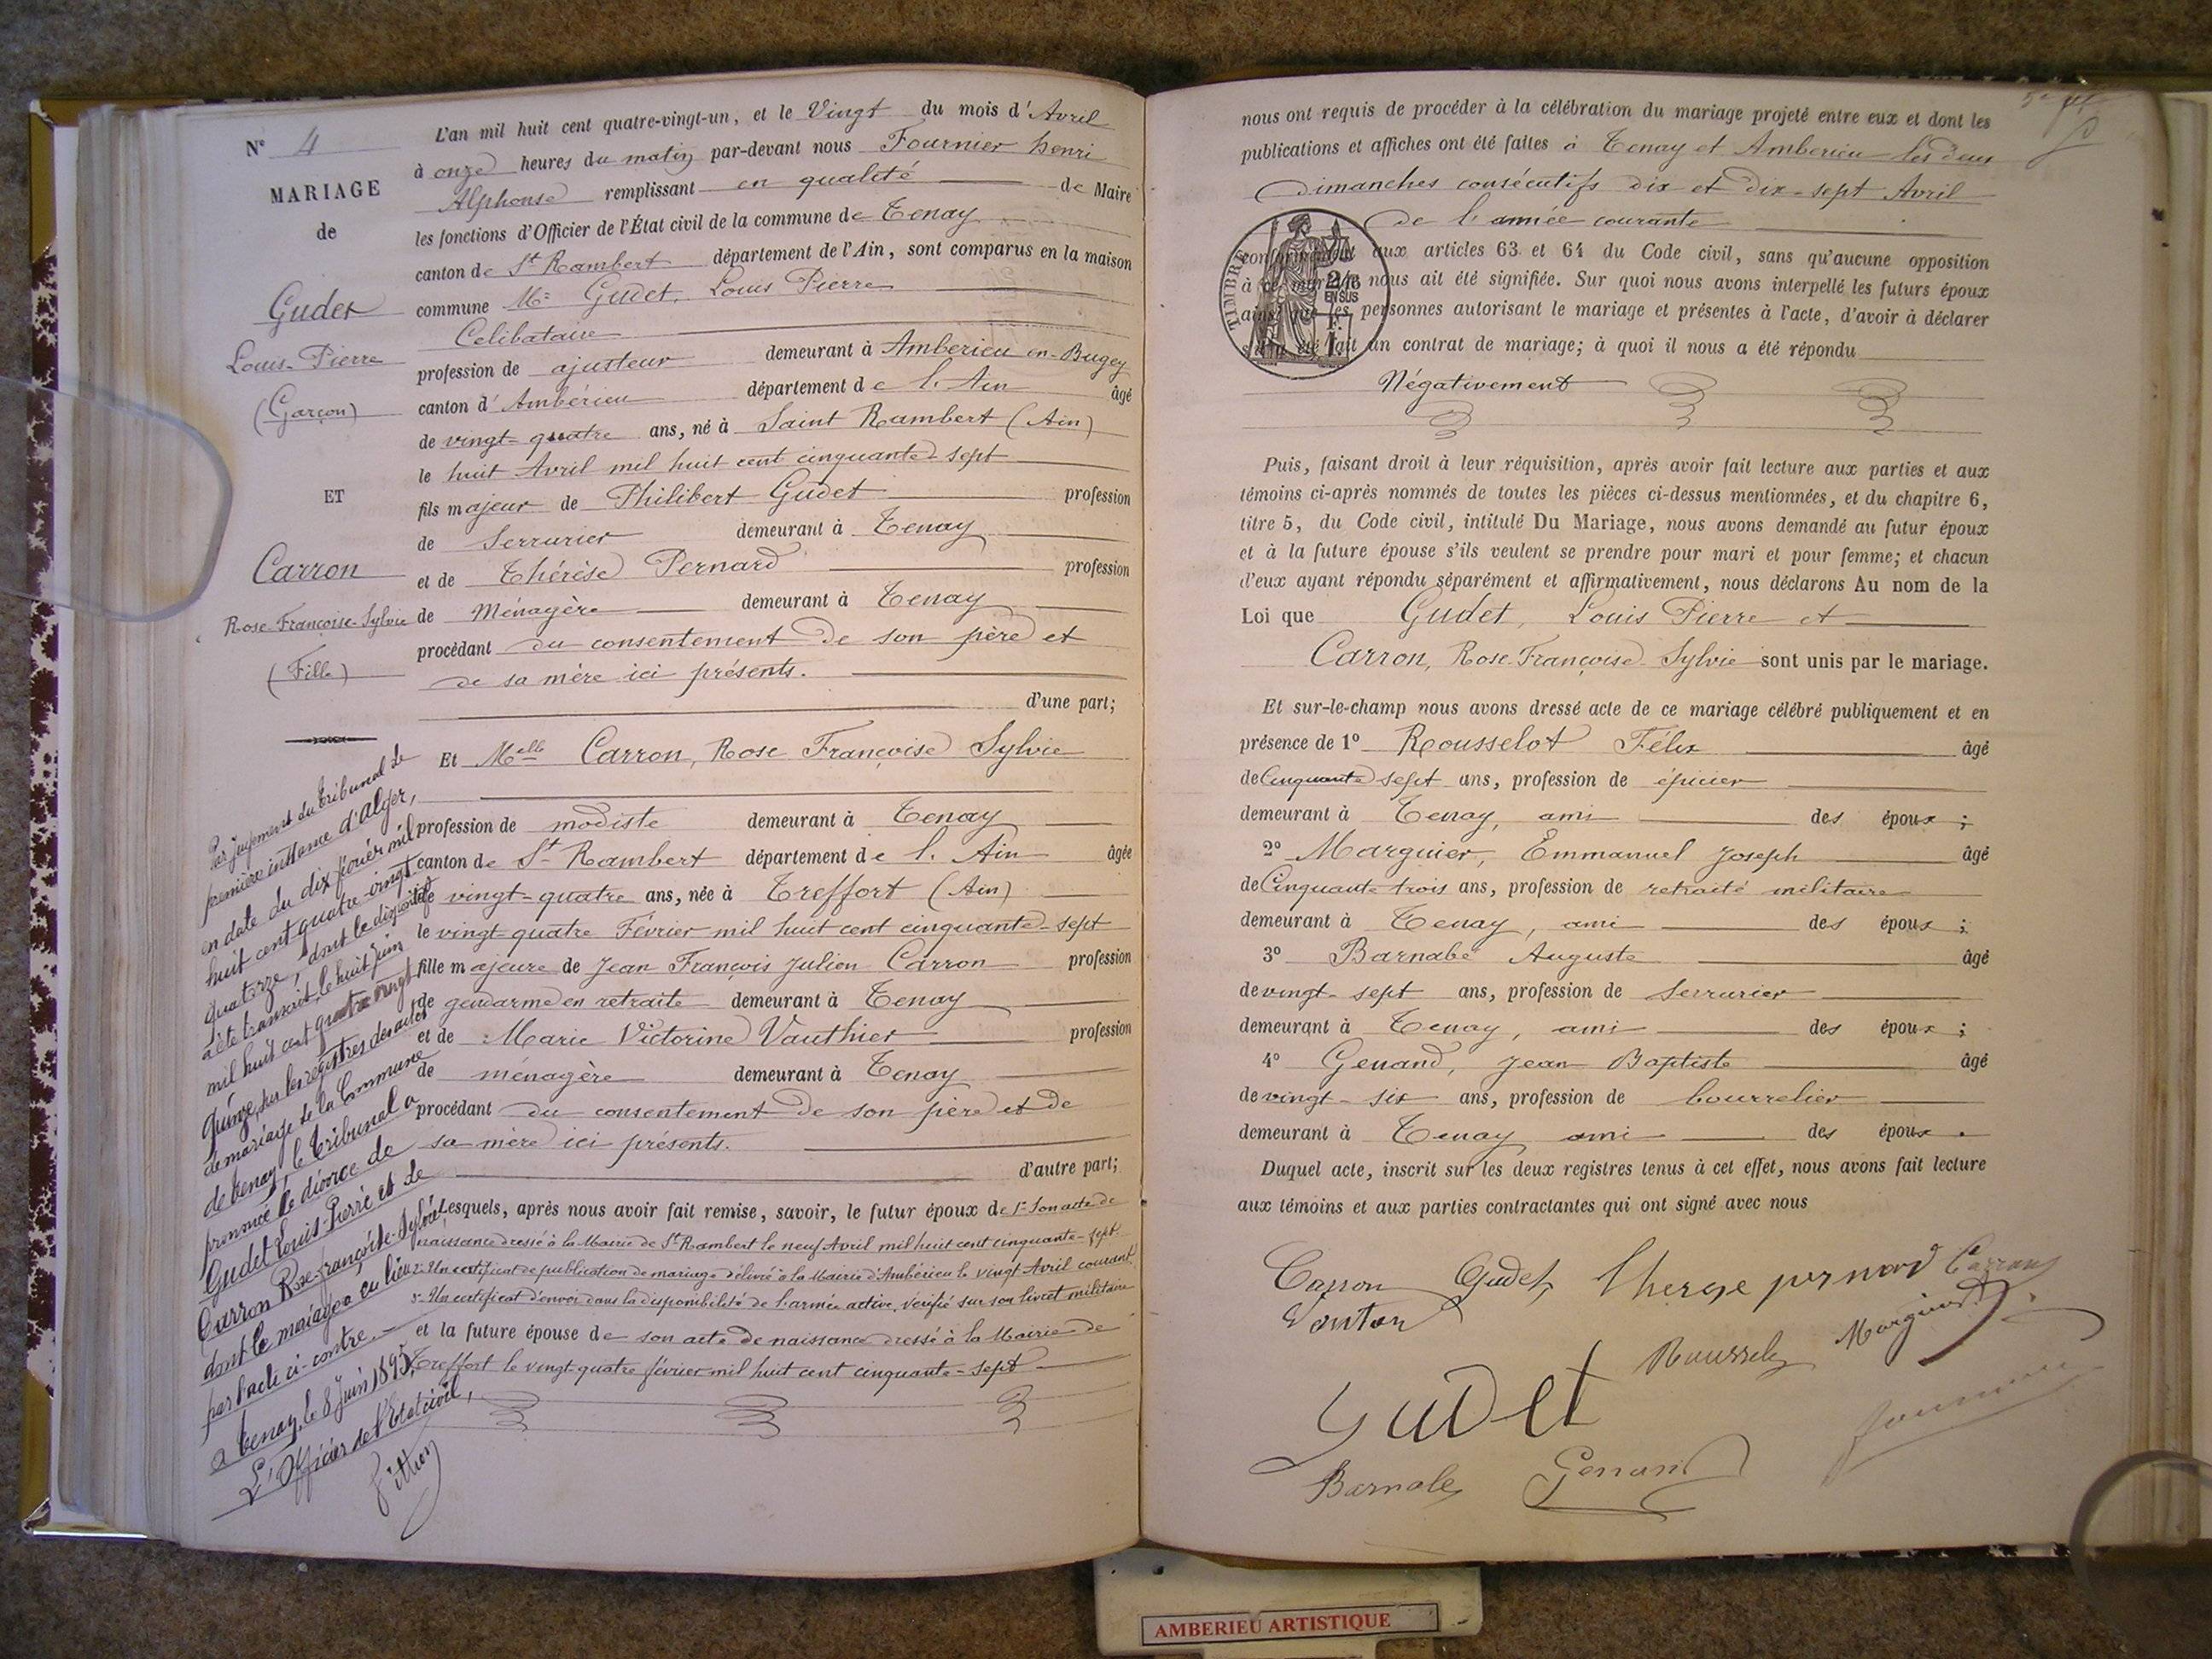 N° 4
MARIAGE
de
Gudet
Louis-Pierre
(Garçon)
ET
Carron
Rose-Françoise-Sylvie
(Fille)
Par jugement du tribunal de
première instance d'Alger,
en date du dix février mil
huit cent quatre-vingt
quatorze, dont le dispositif
a été transcrit, le huit juin
mil huit cent quatre vingt
quinze, sur les registres des actes
de mariage de la Commune
de Tenay, le tribunal a
prononcé le divorce de
Gudet Louis-Pierre et de
Carron Rose-Françoise-Sylvie
dont le mariage a eu lieu
par l'acte ci-contre. —
A Tenay, le 8 Juin 1895,
L'Officier de l'Etat civil,
L'an mil huit cent quatre-vingt-un, et le Vingt du mois d'Avril
à onze heures du matin par-devant nous Fournier henri
Alphonse remplissant en qualité de Maire
les fonctions d'Officier de l'État civil de la commune de Tenay
canton de St Rambert département de l'Ain, sont comparus en la maison
commune Mr Gudet, Louis Pierre
Celibataire
profession de ajusteur demeurant à Amberieu en-Bugey
canton d'Ambérieu département de l'Ain âgé
de vingt-quatre ans, né à Saint Rambert (Ain)
le huit Avril mil huit cent cinquante-sept
fils majeur de Philibert Gudet profession
de Serrurier demeurant à Tenay
et de Thérèse Pernard profession
de Ménagère demeurant à Tenay
procédant du consentement de son père et
de sa mère ici présents.
d'une part;
Et Melle Carron, Rose Françoise Sylvie
profession de modiste demeurant à Tenay
canton de St Rambert département de l'Ain âgée
de vingt-quatre ans, née à Treffort (Ain)
le vingt-quatre Février mil huit cent cinquante-sept
fille majeure de Jean François Julien Carron profession
de gendarme en retraite demeurant à Tenay
et de Marie Victorine Vauthier profession
de ménagère demeurant à Tenay
procédant du consentement de son père et de
sa mère ici présents.
d'autre part;
Lesquels, après nous avoir fait remise, savoir, le futur époux de 1° Son acte de
naissance dressé à la Mairie de St Rambert le neuf Avril mil huit cent cinquante-sept
2° Un certificat de publication de mariage délivré à la Mairie d'Ambérieu le vingt Avril courant
3° Un certificat d'envoi dans la disponibilité de l'armée active, vérifié sur son livret militaire
et la future épouse de son acte de naissance dressé à la Mairie de
Treffort le vingt-quatre février mil huit cent cinquante-sept
nous ont requis de procéder à la célébration du mariage projeté entre eux et dont les
publications et affiches ont été faites à Tenay et Amberieu les deux
Dimanches consécutifs dix et dix-sept Avril
de l'année courante
conformément aux articles 63 et 64 du Code civil, sans qu'aucune opposition
à ce mariage nous ait été signifiée. Sur quoi nous avons interpellé les futurs époux
ainsi que les personnes autorisant le mariage et présentes à l'acte, d'avoir à déclarer
s'il a été fait un contrat de mariage; à quoi il nous a été répondu
Négativement
TIMBRE
2/10
EN SUS
Puis, faisant droit à leur réquisition, après avoir fait lecture aux parties et aux
témoins ci-après nommés de toutes les pièces ci-dessus mentionnées, et du chapitre 6,
titre 5, du Code civil, intitulé Du Mariage, nous avons demandé au futur époux
et à la future épouse s'ils veulent se prendre pour mari et pour femme; et chacun
d'eux ayant répondu séparément et affirmativement, nous déclarons Au nom de la
Loi que Gudet, Louis Pierre et
Carron, Rose-Françoise-Sylvie sont unis par le mariage.
Et sur-le-champ nous avons dressé acte de ce mariage célébré publiquement et en
présence de 1° Rousselot Félix âgé
de Cinquante sept ans, profession de épicier
demeurant à Tenay, ami des époux;
2° Marguier, Emmanuel Joseph âgé
de Cinquante trois ans, profession de retraité militaire
demeurant à Tenay, ami des époux;
3° Barnabé Auguste âgé
de vingt-sept ans, profession de Serrurier
demeurant à Tenay, ami des époux;
4° Genand, Jean Baptiste âgé
de vingt-six ans, profession de bourrelier
demeurant à Tenay ami des époux.
Duquel acte, inscrit sur les deux registres tenus à cet effet, nous avons fait lecture
aux témoins et aux parties contractantes qui ont signé avec nous
Carron Gudet Therese pernard Carron
Marguier
Gudet
Barnabe Genand
AMBERIEU ARTISTIQUE